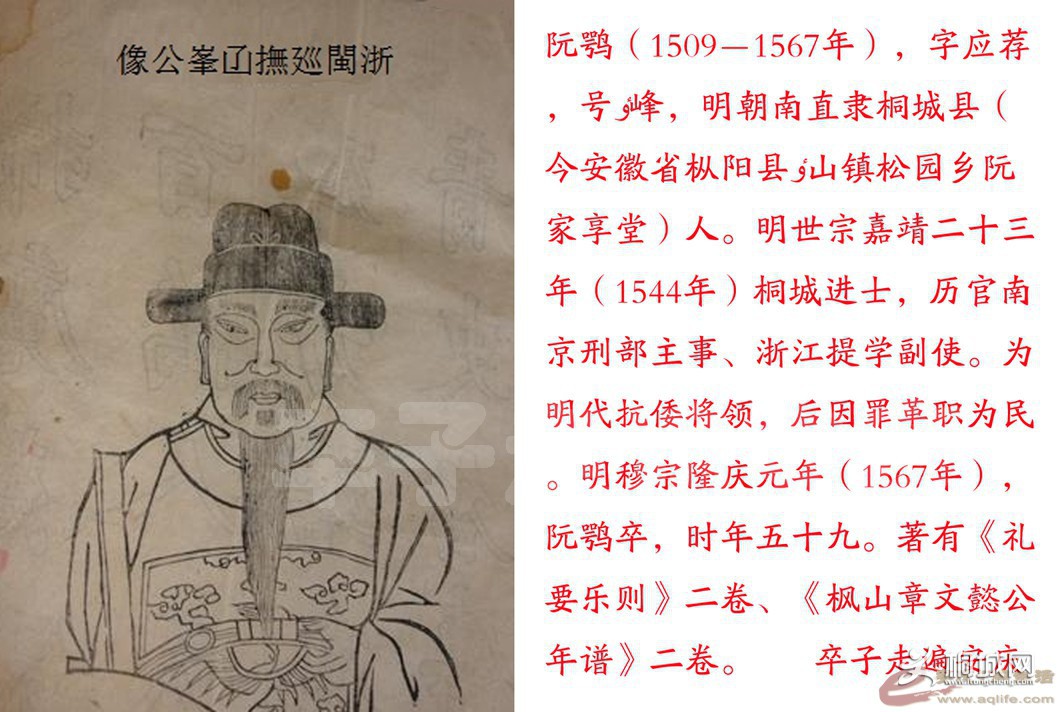 浙閩廵撫凾峯公像
阮鹗（1509—1567年），字应荐
，号ۇ峰，明朝南直隶桐城县（
今安徽省枞阳县ۇ山镇松园乡阮
家享堂）人。明世宗嘉靖二十三
年（1544年）桐城进士，历官南
京刑部主事、浙江提学副使。为
明代抗倭将领，后因罪革职为民
。明穆宗隆庆元年（1567年），
阮鹗卒，时年五十九。著有《礼
要乐则》二卷、《枫山章文懿公
年谱》二卷。 卒子走遍安庆
桐城网
www.itongcheng.com
www.aqlife.com